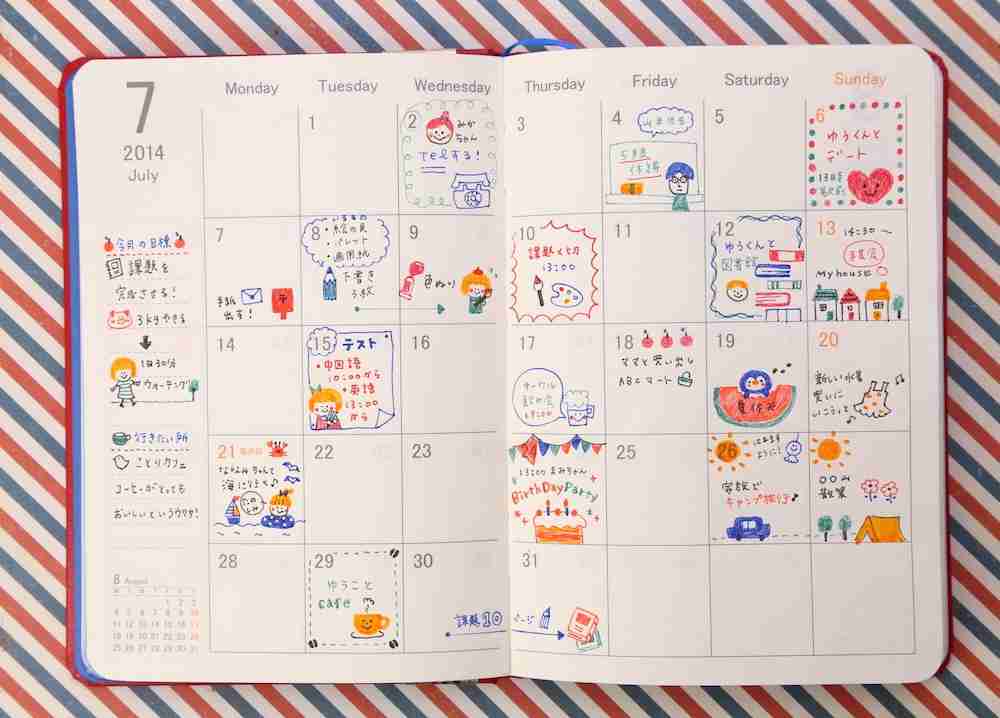 7
2014
July
Monday
Tuesday
Wednesday
Thursday
Friday
Saturday
Sunday
今月の目標
課題を
完成させる!
3kgやせる
1日30分
ウォーキング
行きたい所
ことりカフェ
コーヒーがとっても
おいしいというウワサ!
8 August
1
2
みか
ちゃん
Telする!
3
4
5限
休講
5
6
ゆうくんと
デート
7
手紙
出す!
8
・絵の具
・パレット
・画用紙
下書き
3枚
9
色ぬり
10
課題〆切
13:00
11
12
ゆうくんと
図書館
13
14:30〜
My house
14
15
テスト
・中国語
10:00から
・英語
13:00
から
16
17
サークル
飲み会
18
ママと買い出し
ABCマート
19
夏休み
20
新しい水着
買いに
いこうっと
21
海の日
ななみちゃんと
海に行くよ
たのしみ
22
23
24
13:00 まみちゃん
BirthDayParty
25
26
はれます
ように!
家族で
キャンプ旅行
散策
28
29
ゆうこと
cafe
30
課題10
ページ
31